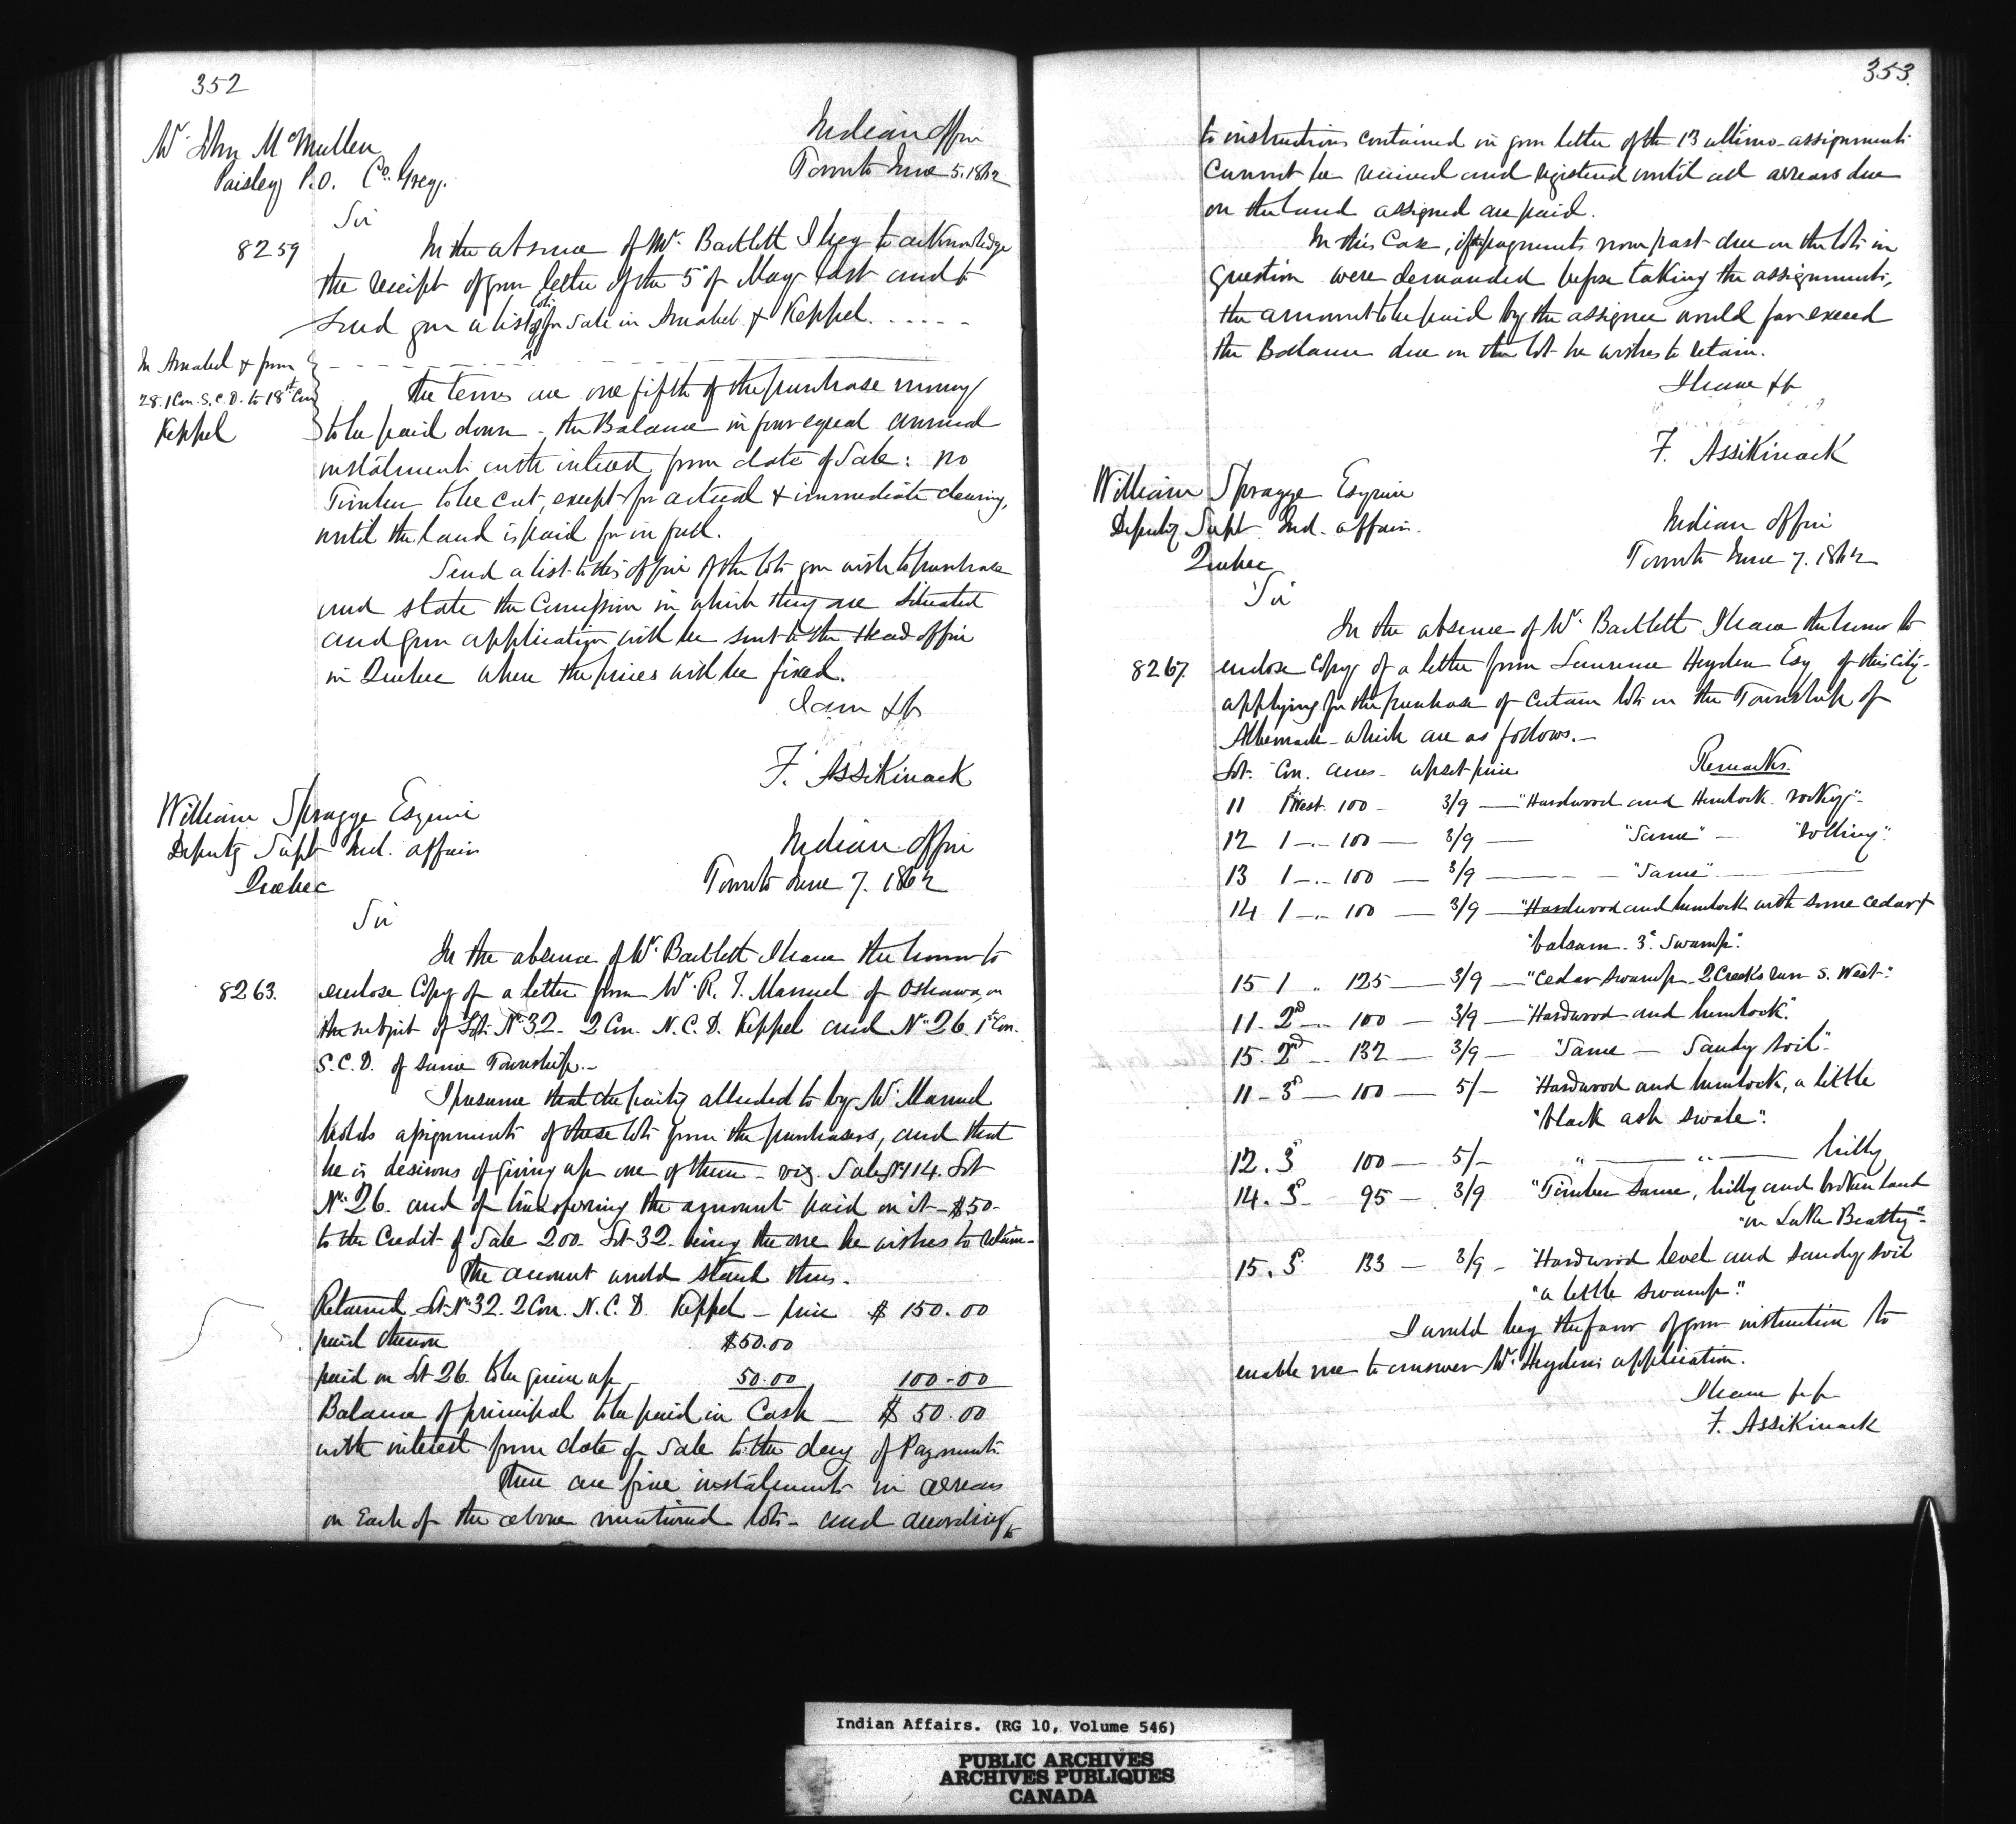 352
Mr. John McMullen
Paisley P.O. Co. Grey.
Indian Office
Toronto June 5. 1862
Sir
8259
In the absence of Mr. Bartlett I beg to acknowledge
the receipt of your letter of the 5th of May last and to
send you a list of lots for Sale in Amabel & Keppel.
In Amabel & from
28. 1 Con. S.C.D. to 18th Con
Keppel
The terms are one fifth of the purchase money
to be paid down - the Balance in four equal annual
instalments with interest from date of Sale: no
Timber to be cut, except for actual & immediate clearing,
until the land is paid for in full.
Send a list to this office of the lots you wish to purchase
and state the Concession in which they are situated
and your application will be sent to the Head office
in Quebec where the prices will be fixed.
I am &c
F. Assikinack
William Spragge Esquire
Deputy Supt Ind. affairs
Quebec
Indian Office
Toronto June 7. 1862
Sir
In the absence of Mr. Bartlett I have the honor to
8263.
enclose Copy of a letter from Mr. R. J. Manuel of Oshawa, on
the subject of Lots No. 32 - 2 Con. N.C.D. Keppel and No. 26. 1st Con.
S.C.D. of same Township.-
I presume that the party alluded to by Mr. Manuel
holds assignments of these lots from the purchasers, and that
he is desirous of giving up one of them - viz. Sale No. 114. Lot
No. 26. and of transferring the amount paid on it - $50 -
to the Credit of Sale 200. Lot 32. being the one he wishes to retain -
The account would stand thus -
Retained Lot No. 32. 2 Con. N.C.D. Keppel - price $ 150.00
paid thereon $50.00
paid on Lot 26. to be given up - 50.00 100.00
Balance of principal to be paid in Cash - $ 50.00
with interest from date of Sale to the day of Payment.
There are five instalments in arrears
on Each of the above mentioned lots - and according to
353.
to instructions contained in your letter of the 13 ultimo - assignments
Cannot be received and registered until all arrears due
on the land assigned are paid.
In this Case, if the payments now past due on the lots in
question were demanded before taking the assignments,
the amount to be paid by the assignee would far exceed
the Balance due on the lot he wishes to retain.
I have &c
F. Assikinack
William Spragge Esquire
Deputy Supt Ind. affairs.
Quebec
Indian Office
Toronto June 7. 1862
Sir
In the absence of Mr. Bartlett I have the honor to
8267.
enclose Copy of a letter from Lawrence Heyden Esq of this City -
applying for the purchase of Certain lots in the Township of
Albemarle - which are as follows.-
Lot. Con. Acres - upset price Remarks.
11 1 West. 100 - 3/9 - "Hardwood and Hemlock rocky" -
12 1 - . - 100 - 3/9 - "Same" - "rolling".
13 1 - . - 100 - 3/9 - "Same"
14 1 - . - 100 - 3/9 - "Hardwood and hemlock with some cedar &
"balsam - 3c. Swamp".
15 1 . 125 - 3/9 - "Cedar swamp - 2 Creeks run S. West".
11. 2d - . - 100 - 3/9 - "Hardwood and hemlock".
15. 2nd - . 132 - 3/9 - "Same - Sandy soil".
11 - 3d - 100 - 5/- "Hardwood and hemlock, a little
"black ash swale".
12. 3 100 - 5/- " - " - hilly
14. 3d - 95 - 3/9 "Timber same, hilly and broken land
"on Lake Beatty".
15. 3d. 133 - 3/9 - "Hardwood level and sandy soil
"a little swamp".
I would beg the favor of your instruction to
enable me to answer Mr. Heyden's application.
I have &c
F. Assikinack
Indian Affairs. (RG 10, Volume 546)
PUBLIC ARCHIVES
ARCHIVES PUBLIQUES
CANADA